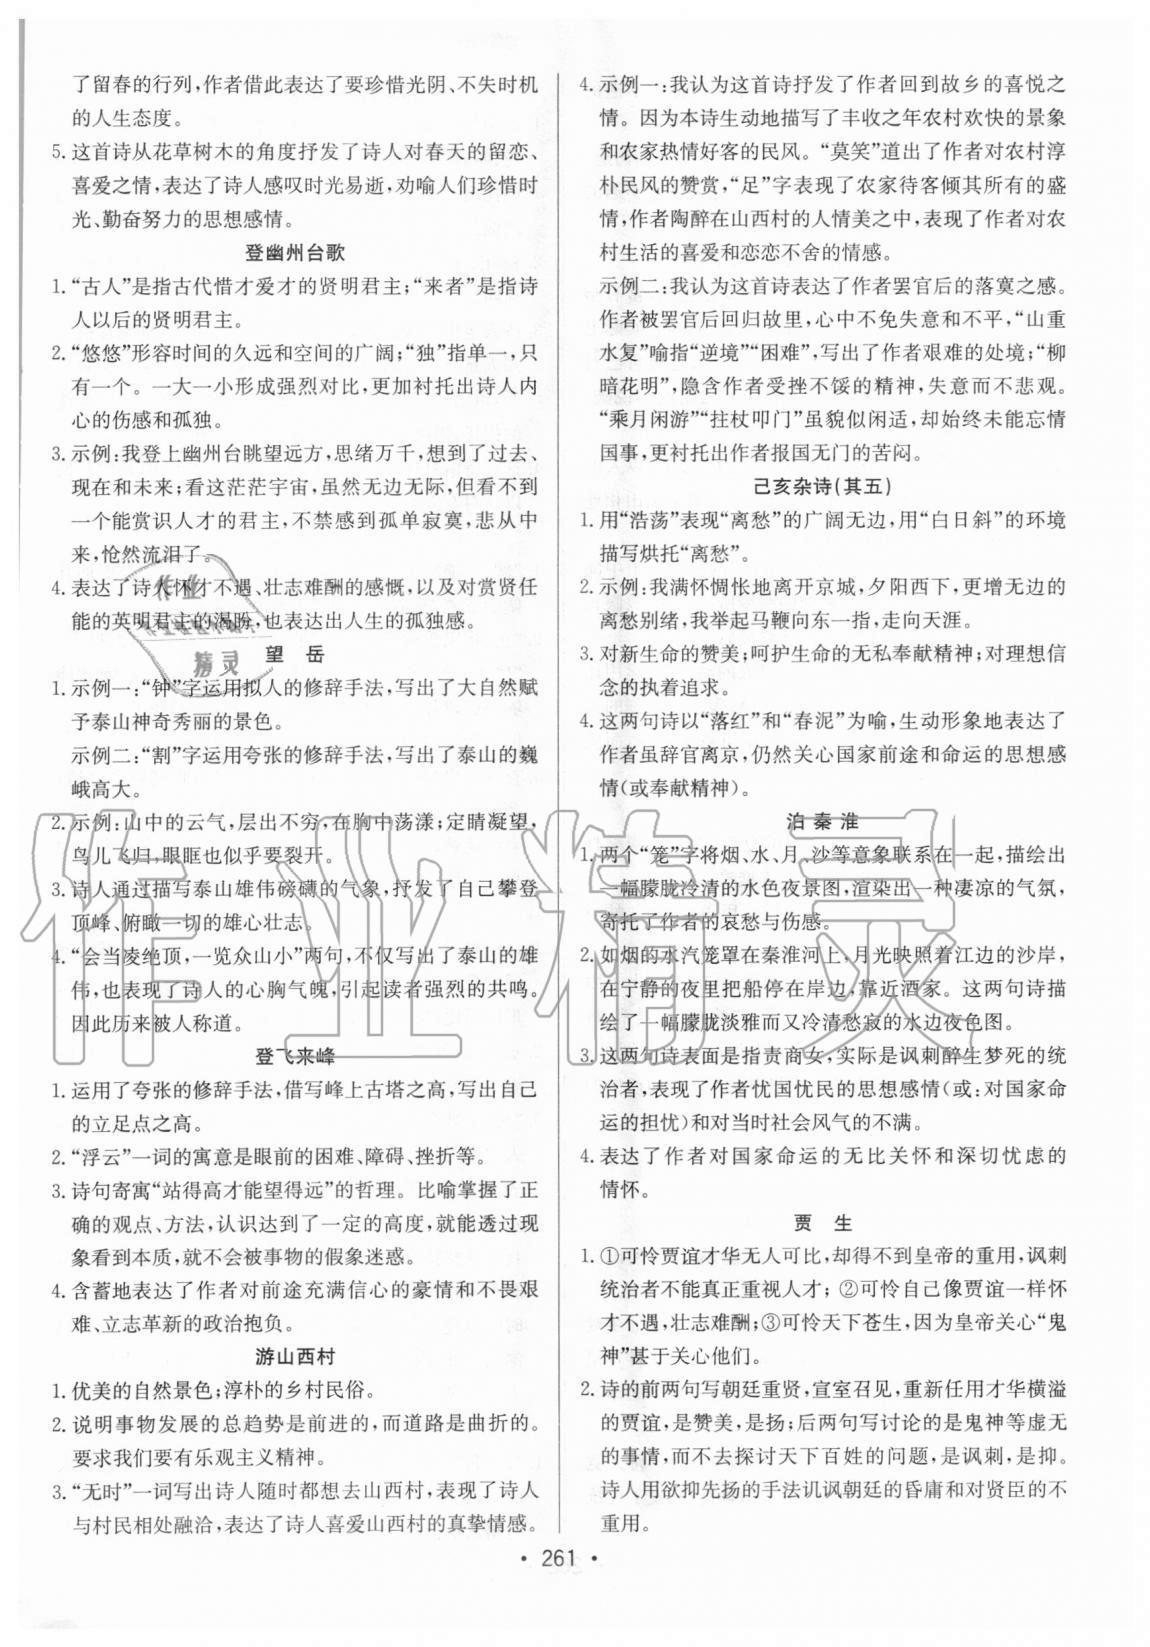 了留春的行列,作者借此表达了要珍惜光阴、不失时机
的人生态度。
5. 这首诗从花草树木的角度抒发了诗人对春天的留恋、
喜爱之情,表达了诗人感叹时光易逝,劝喻人们珍惜时
光、勤奋努力的思想感情。
登幽州台歌
1. “古人”是指古代惜才爱才的贤明君主;“来者”是指诗
人以后的贤明君主。
2. “悠悠”形容时间的久远和空间的广阔;“独”指单一,只
有一个。一大一小形成强烈对比,更加衬托出诗人内
心的伤感和孤独。
3. 示例:我登上幽州台眺望远方,思绪万千,想到了过去、
现在和未来;看这茫茫宇宙,虽然无边无际,但看不到
一个能赏识人才的君主,不禁感到孤单寂寞,悲从中
来,怆然流泪了。
4. 表达了诗人怀才不遇、壮志难酬的感慨,以及对赏贤任
能的英明君主的渴盼,也表达出人生的孤独感。
望 岳
1. 示例一:“钟”字运用拟人的修辞手法,写出了大自然赋
予泰山神奇秀丽的景色。
示例二:“割”字运用夸张的修辞手法,写出了泰山的巍
峨高大。
2. 示例:山中的云气,层出不穷,在胸中荡漾;定睛凝望,
鸟儿飞归,眼眶也似乎要裂开。
3. 诗人通过描写泰山雄伟磅礴的气象,抒发了自己攀登
顶峰、俯瞰一切的雄心壮志。
4. “会当凌绝顶,一览众山小”两句,不仅写出了泰山的雄
伟,也表现了诗人的心胸气魄,引起读者强烈的共鸣。
因此历来被人称道。
登飞来峰
1. 运用了夸张的修辞手法,借写峰上古塔之高,写出自己
的立足点之高。
2. “浮云”一词的寓意是眼前的困难、障碍、挫折等。
3. 诗句寄寓“站得高才能望得远”的哲理。比喻掌握了正
确的观点、方法,认识达到了一定的高度,就能透过现
象看到本质,就不会被事物的假象迷惑。
4. 含蓄地表达了作者对前途充满信心的豪情和不畏艰
难、立志革新的政治抱负。
游山西村
1. 优美的自然景色;淳朴的乡村民俗。
2. 说明事物发展的总趋势是前进的,而道路是曲折的。
要求我们要有乐观主义精神。
3. “无时”一词写出诗人随时都想去山西村,表现了诗人
与村民相处融洽,表达了诗人喜爱山西村的真挚情感。
4. 示例一:我认为这首诗抒发了作者回到故乡的喜悦之
情。因为本诗生动地描写了丰收之年农村欢快的景象
和农家热情好客的民风。“莫笑”道出了作者对农村淳
朴民风的赞赏,“足”字表现了农家待客倾其所有的盛
情,作者陶醉在山西村的人情美之中,表现了作者对农
村生活的喜爱和恋恋不舍的情感。
示例二:我认为这首诗表达了作者罢官后的落寞之感。
作者被罢官后回归故里,心中不免失意和不平,“山重
水复”喻指“逆境”“困难”,写出了作者艰难的处境;“柳
暗花明”,隐含作者受挫不馁的精神,失意而不悲观。
“乘月闲游”“拄杖叩门”虽貌似闲适,却始终未能忘情
国事,更衬托出作者报国无门的苦闷。
己亥杂诗(其五)
1. 用“浩荡”表现“离愁”的广阔无边,用“白日斜”的环境
描写烘托“离愁”。
2. 示例:我满怀惆怅地离开京城,夕阳西下,更增无边的
离愁别绪,我举起马鞭向东一指,走向天涯。
3. 对新生命的赞美;呵护生命的无私奉献精神;对理想信
念的执着追求。
4. 这两句诗以“落红”和“春泥”为喻,生动形象地表达了
作者虽辞官离京,仍然关心国家前途和命运的思想感
情(或奉献精神)。
泊秦淮
1. 两个“笼”字将烟、水、月、沙等意象联系在一起,描绘出
一幅朦胧冷清的水色夜景图,渲染出一种凄凉的气氛,
寄托了作者的哀愁与伤感。
2. 如烟的水汽笼罩在秦淮河上,月光映照着江边的沙岸,
在宁静的夜里把船停在岸边,靠近酒家。这两句诗描
绘了一幅朦胧淡雅而又冷清愁寂的水边夜色图。
3. 这两句诗表面是指责商女,实际是讽刺醉生梦死的统
治者,表现了作者忧国忧民的思想感情(或:对国家命
运的担忧)和对当时社会风气的不满。
4. 表达了作者对国家命运的无比关怀和深切忧虑的
情怀。
贾 生
1. ①可怜贾谊才华无人可比,却得不到皇帝的重用,讽刺
统治者不能真正重视人才;②可怜自己像贾谊一样怀
才不遇,壮志难酬;③可怜天下苍生,因为皇帝关心“鬼
神”甚于关心他们。
2. 诗的前两句写朝廷重贤,宣室召见,重新任用才华横溢
的贾谊,是赞美,是扬;后两句写讨论的是鬼神等虚无
的事情,而不去探讨天下百姓的问题,是讽刺,是抑。
诗人用欲抑先扬的手法讥讽朝廷的昏庸和对贤臣的不
重用。
• 261 •
作业精灵
作业
精灵